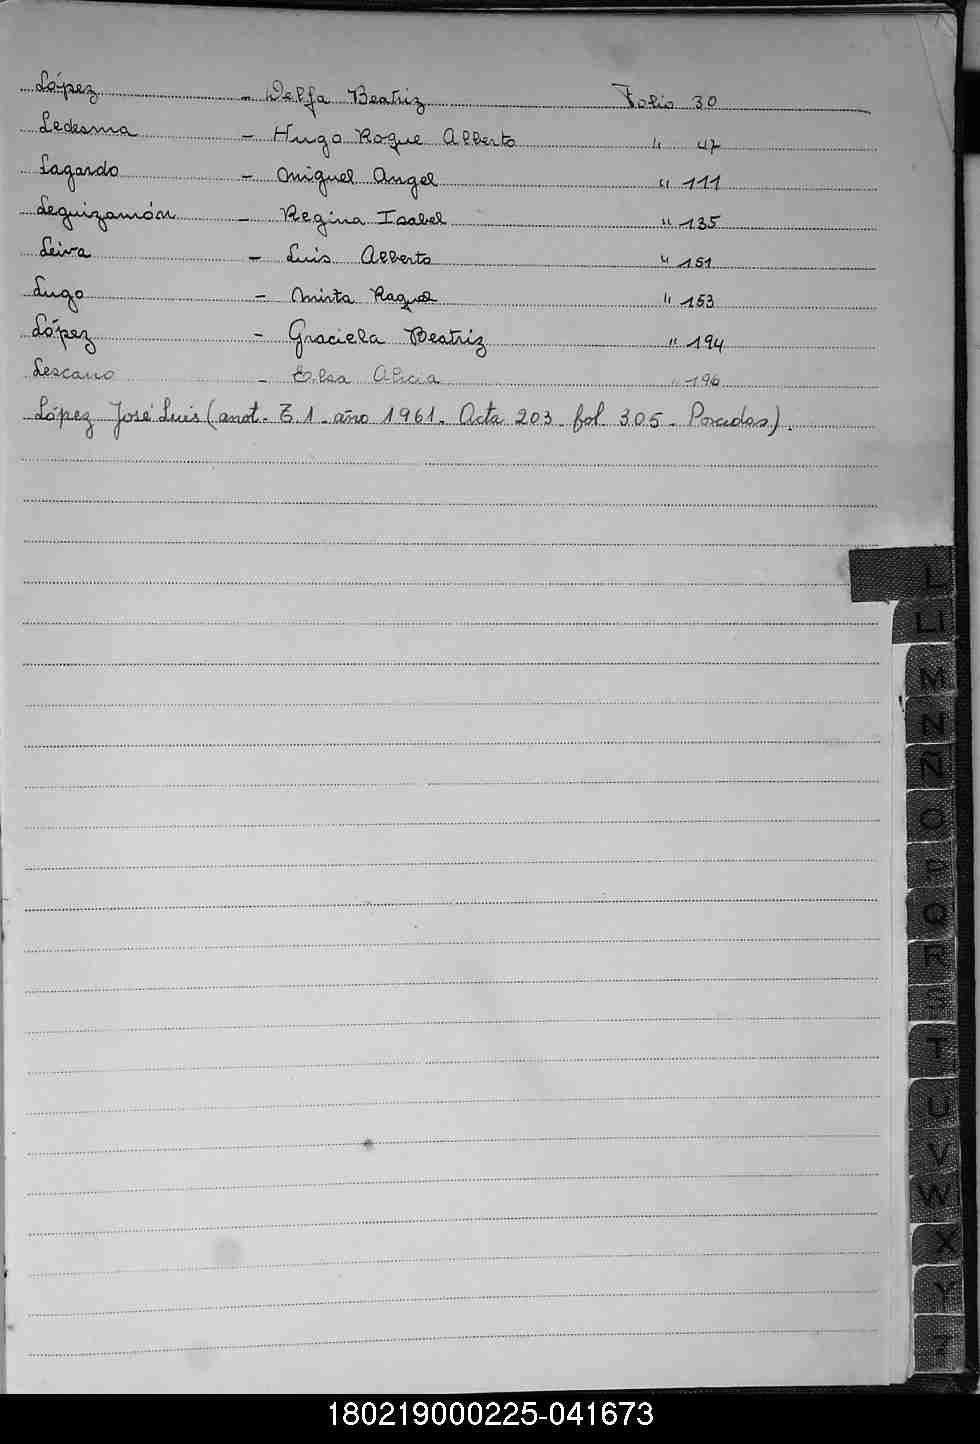 López - Delfa Beatriz Folio 30
Ledesma - Hugo Roque Alberto " 47
Lagardo - Miguel Angel " 111
Leguizamón - Regina Isabel " 135
Leiva - Luis Alberto " 151
Lugo - Mirta Raquel " 153
López - Graciela Beatriz " 194
Lescano - Elsa Alicia " 196
López José Luis (anot. T 1 - año 1961. Acta 203 - fol. 305 - Posadas).
L
Ll
M
N
Ñ
O
P
Q
R
S
T
U
V
W
X
Y
Z
180219000225-041673